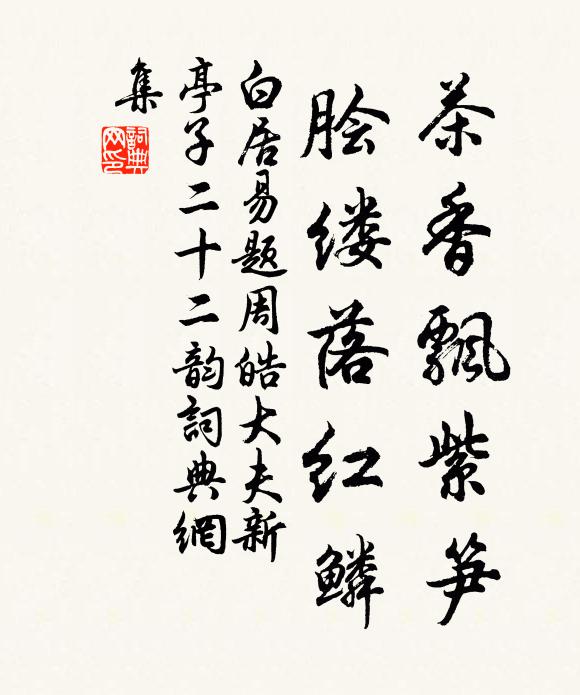 茶香飄紫笋
脍缕落红鳞
白居易题周皓大夫新
亭子二十二韵詞典網
集
詞典网印